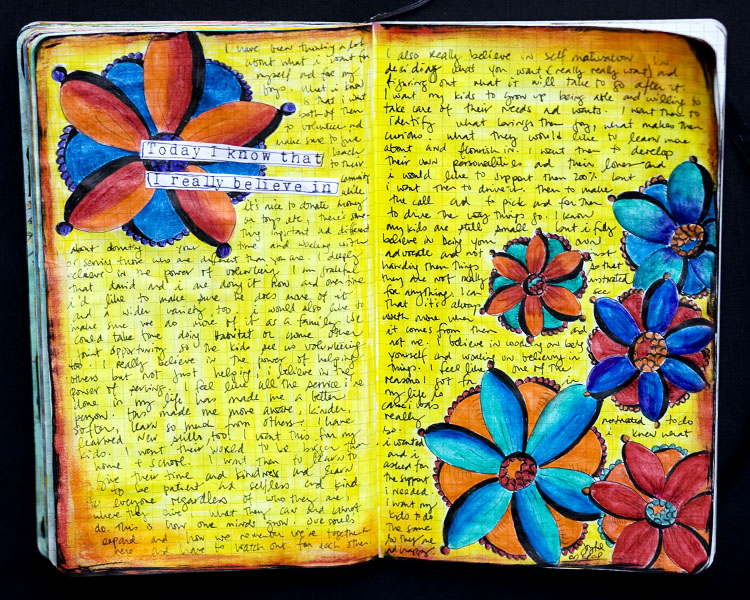 I have been thinking a lot
about what i want for
myself and for my
boys. what i know
is that i want
both of them
to volunteer and
make sure to live
teach
Today I know that
to their
I really believe in
community
while
it's nice to donate money
or toys, etc, there's some-
thing important and different
about donating your time and working with
or serving those who are different than you are. I deeply
believe in the power of volunteering. I am grateful
that david and i are doing it now and over time
i'd like to make sure he does more of it
and a wider variety too. i would also like to
make sure we do more of it as a family. we
could take time doing habitat or some other
joint opportunity so the kids see us volunteering
too. I really believe in the power of helping
others but not just helping, i believe in the
power of serving. I feel like all the service i've
done in my life has made me a better
person. It has made me more aware, kinder,
softer, learn so much from others. I have
learned new skills, too! I want this for my
kids. I want their world to be bigger than
home + school. I want them to learn to
give their time and kindness and learn
to be patient and selfless and kind
to everyone regardless of who they are,
where they live, what they can and cannot
do. This is how our minds grow, our souls
expand and how we remember we're together
here and have to watch out for each other.
I also really believe in self motivation in
deciding what you want (really really want) and
figuring out what it will take to go after it.
I want my kids to grow up being able and willing to
take care of their needs and wants. I want them to
identify what brings them joy, what makes them
curious, what they would like to learn more
about and flourish in. I want them to develop
their own personalities and their loves and
i would like to support them 200% but
i want them to drive it. Them to make
the call and to pick and for them
to drive the way things go. I know
my kids are still small but i fully
believe in being your own
advocate and not just
handing them things so that
they are not really
for anything. I can see
that it's always
worth more when
it comes from them and
not me. I believe in working on being
yourself and working on believing in
things. I feel like one of the
reasons I got far in
my life is
cause i was motivated to do
really i knew what
so.
i wanted
and i
asked for
the support
i needed.
I want my
kids to do
the same
so they are
and happy.